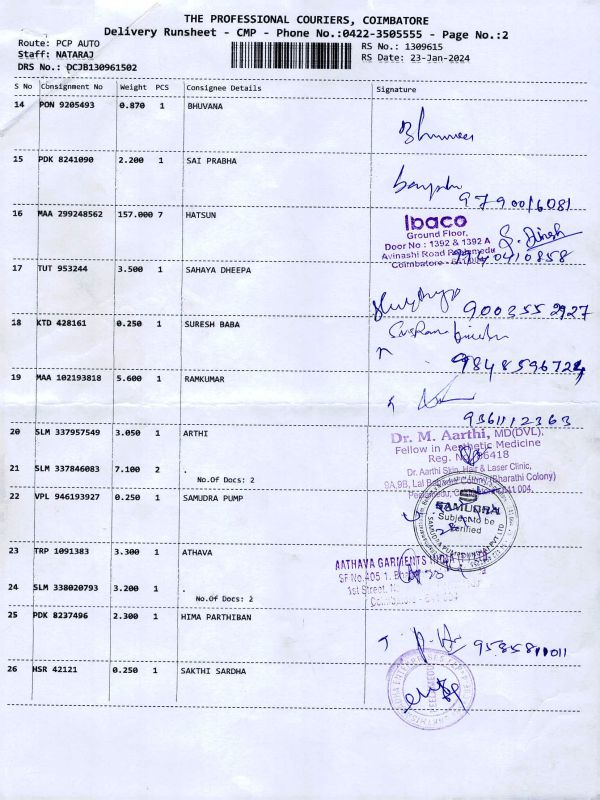 THE PROFESSIONAL COURIERS, COIMBATORE
Delivery Runsheet - CMP - Phone No.:0422-3505555 - Page No.:2
Route: PCP AUTO
Staff: NATARAJ
DRS No.: DCJB130961502
RS No.: 1309615
RS Date: 23-Jan-2024
S No Consignment No Weight PCS Consignee Details Signature
14 PON 9205493 0.870 1 BHUVANA
15 PDK 8241090 2.200 1 SAI PRABHA
9790016081
16 MAA 299248562 157.000 7 HATSUN
Ibaco
Ground Floor,
Door No : 1392 & 1392 A
Avinashi Road
Coimbatore
S. Dinesh
17 TUT 953244 3.500 1 SAHAYA DHEEPA
9003552927
18 KTD 428161 0.250 1 SURESH BABA
9848596724
19 MAA 102193818 5.600 1 RAMKUMAR
9361112363
20 SLM 337957549 3.050 1 ARTHI
Dr. M. Aarthi, MD(DVL),
Fellow in Aesthetic Medicine
Reg. No. 6418
Dr. Aarthi Skin, Hair & Laser Clinic,
9A,9B, Lal Bahadur (Bharathi Colony)
21 SLM 337846083 7.100 2 .
No.Of Docs: 2
22 VPL 946193927 0.250 1 SAMUDRA PUMP
SAMUDRA
Subject to be
verified
23 TRP 1091383 3.300 1 ATHAVA
AATHAVA GARMENTS INDIA
SF No.405 1.
1st Street,
24 SLM 338020793 3.200 1 .
No.Of Docs: 2
25 PDK 8237496 2.300 1 HIMA PARTHIBAN
9585811011
26 HSR 42121 0.250 1 SAKTHI SARDHA